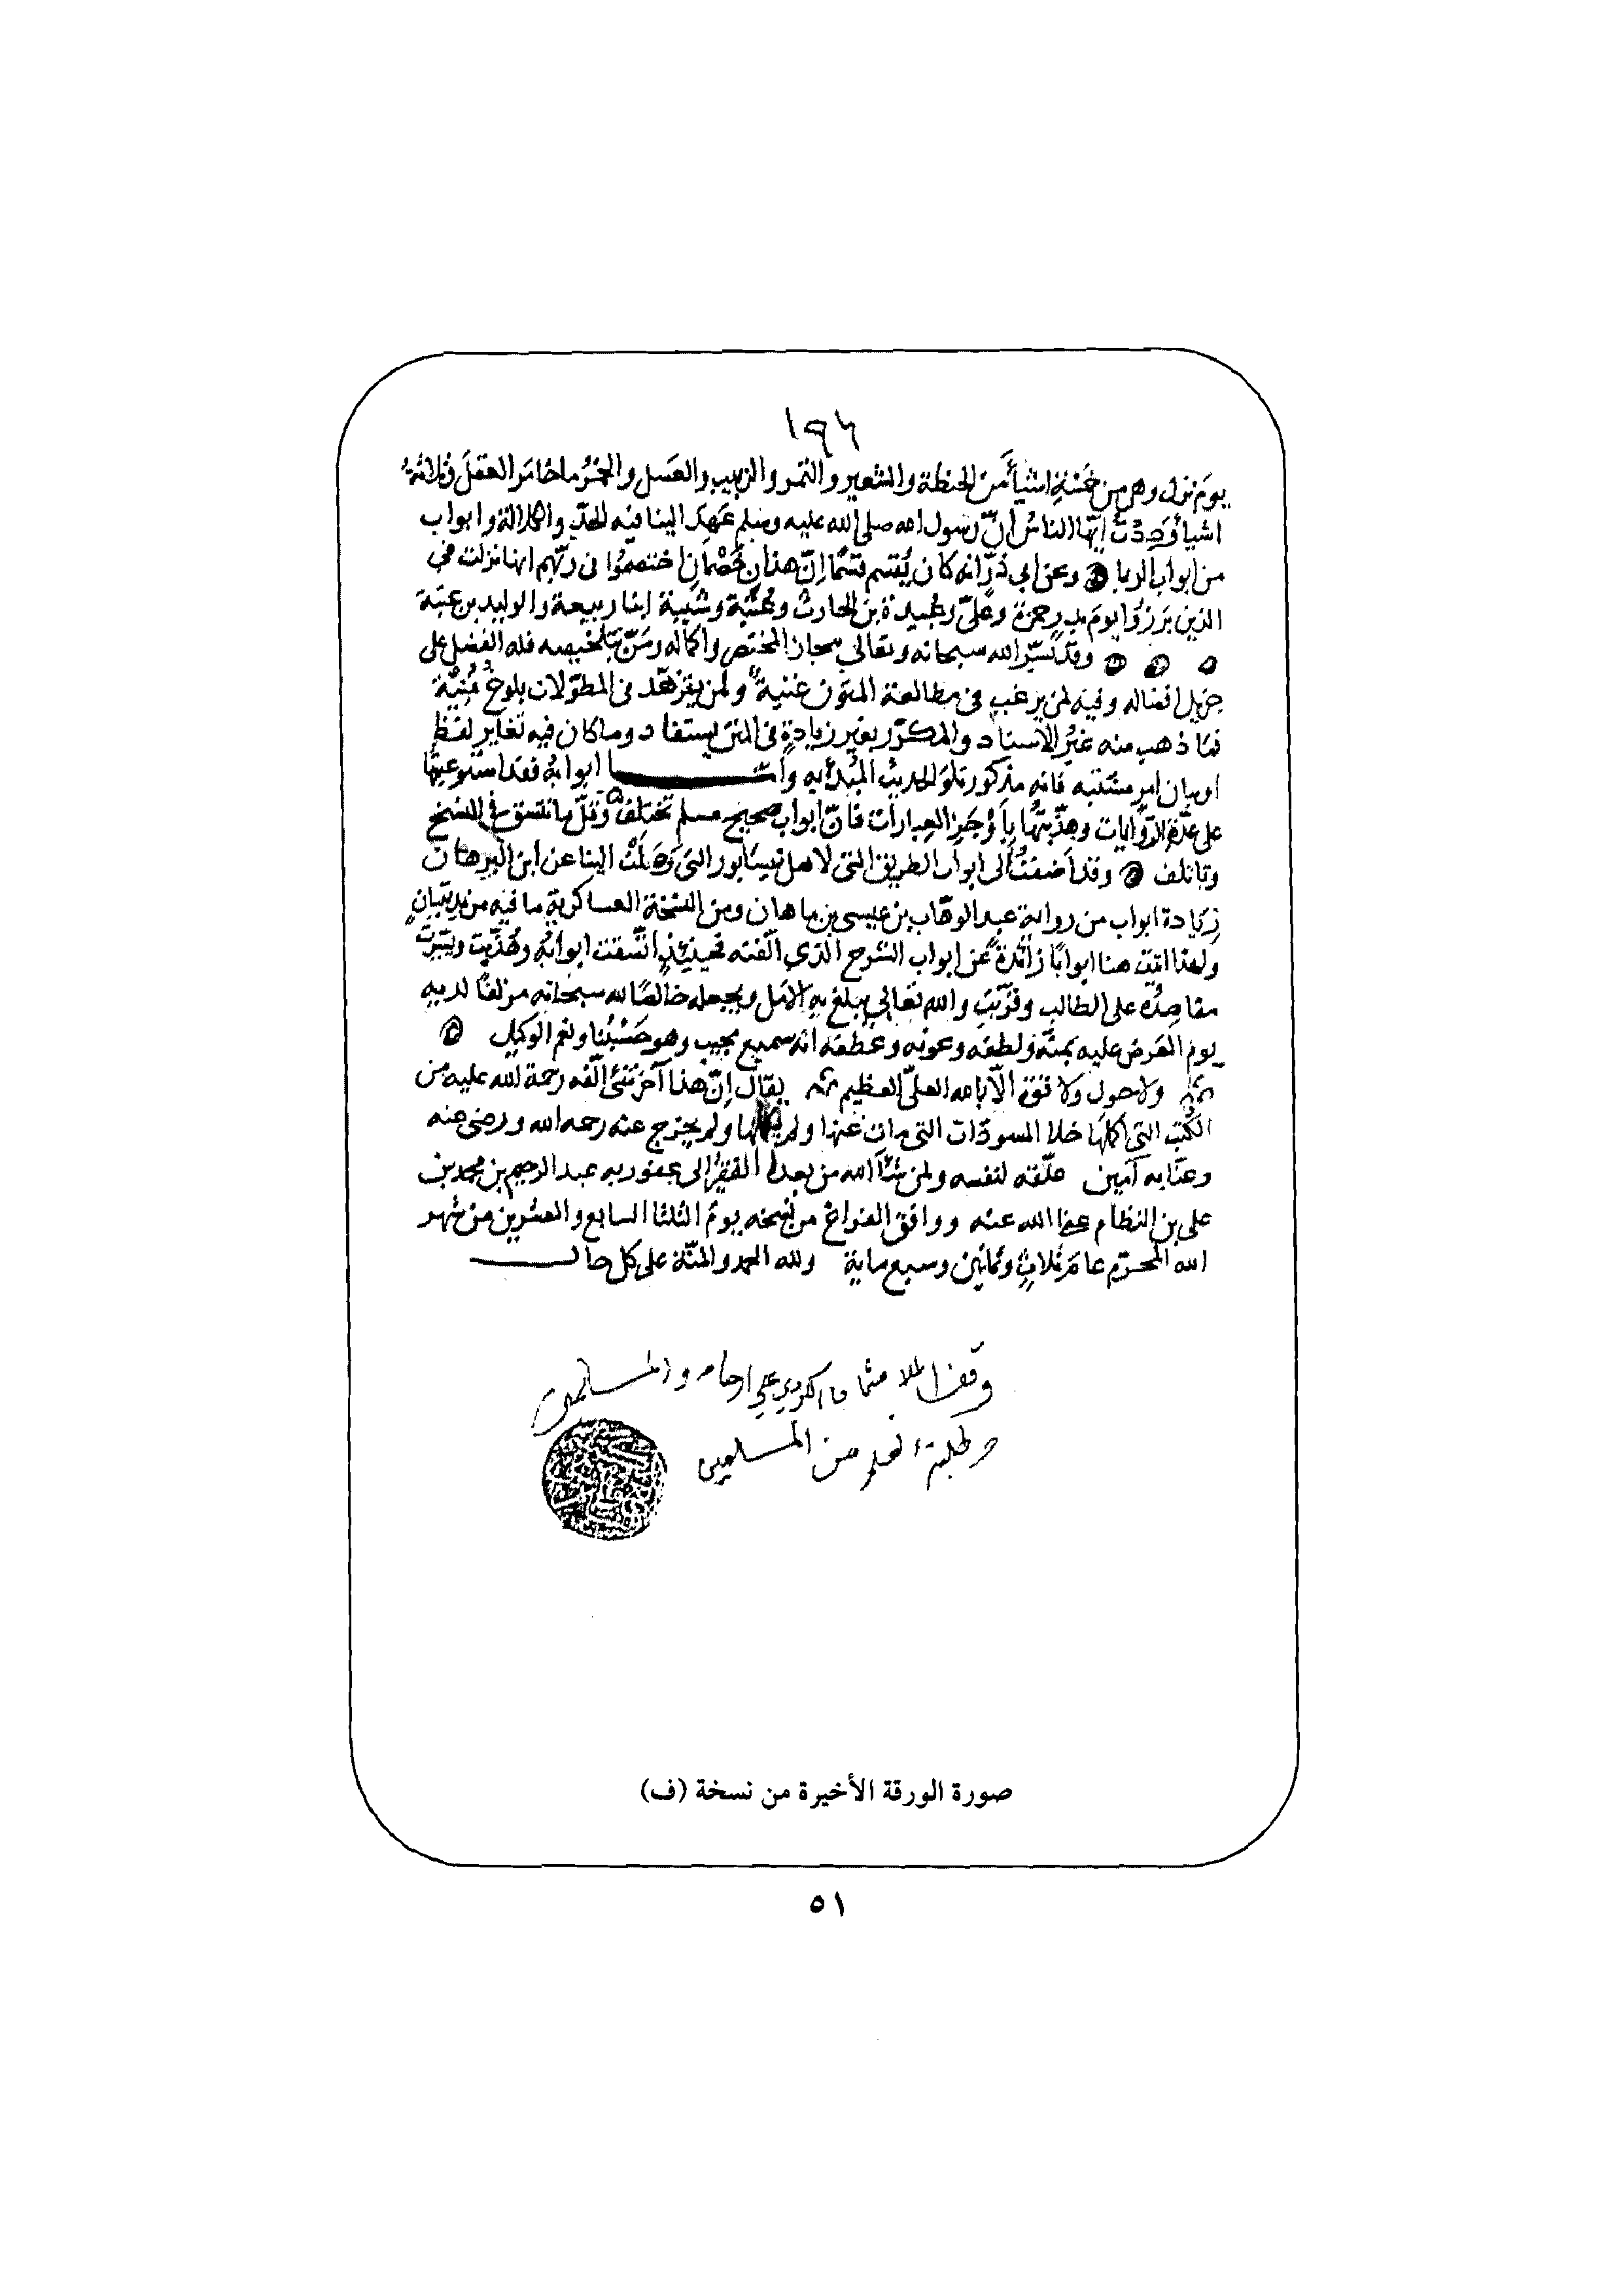 ١٩٦
يومَ نزل وهي من خمسة اشيأ من الحنطة والشعير والتمر والزبيب والعسل والخمر ما خامر العقل وثلاثةُ
اشيأ وددتُ ايّها الناس انّ رسول الله صلى الله عليه وسلم عهد الينا فيه الجد والكلالة وابواب
من ابواب الربا وعن ابي ذرّ انه كان يُقسم قسمًا إنّ هذان خصمان اختصموا فى ربهم انها نزلت في
الذين برزوا يوم بدر حمزة وعلىّ وعُبيدة بن الحارث وعُتبة وشيبة ابنا ربيعة والوليد بن عتبة
وقد يسّر الله سبحانه وتعالى المختصر واكماله ومَنّ بتلخيصه فله الفضل على
جزيل افضاله وفيه لمن يرغب في مطالعة المتون غنية ولمن يزهد فى المطولات بلوغُ مُنية
فما ذهب منه غيرُ الاسناد والمكرّر بغير زيادةٍ فى المتن يستفاد وما كان فيه تغاير لفظ
او بيان امر مشتبه فانه مذكور تلو الحديث المُبدأ به وامّا ابوابه فقد استوعبتها
على عدّة الروايات وهذّبتها بأوجز العبارات فانّ ابواب صحيح مسلم تختلف وقلّ ما تتسق فى النسخ
وتاتلف وقد اضفتُ الى ابواب الطريق التى لاهل نيسابور التى وصلت الينا عن ابن البرهان
زيادة ابواب من رواية عبد الوهّاب بن عيسى بن ماهان ومن النسخة العساكرية ما فيه مزيد تبيانٍ
ولهذا اتيت هنا ابوابًا زائدةً عن ابواب الشرح الذي الّفته فحينئذٍ اتّسقت ابوابُه وهُذّبت وتيسّرت
مقاصدُه على الطالب وقُرّبت والله تعالى يبلغ به الامل ويجعله خالصًا لله سبحانه مزلفًا لديه
يوم العرض عليه بمنّه ولطفه وعونه وعطفه انه سميع مجيب وهو حَسْبُنا ونعم الوكيل
ولا حول ولا قوة الّا بالله العلىّ العظيم يقال انّ هذا آخر شئ الّفه رحمة الله عليه من
الكُتب التى اكملها خلا المسودّات التى مات عنها ولم يكملها ولم يخرج عنه رحمه الله ورضى عنه
وعنّا به آمين علّقه لنفسه ولمن شأ الله من بعده الفقيرُ إلى عفو ربه عبد الرحيم بن محمد بن
على بن النظام عفا الله عنه ووافق الفراغ من نسخه يوم الثلثا السابع والعشرين من شهر
الله المحرّم عام ثلاثٍ وثمانين وسبع ماية ولله الحمد والمنّة على كل حال
وقف الملا عثمان الكردي على ارحامه والمسلمين
وطلبة العلم من المسلمين
صورة الورقة الأخيرة من نسخة (ف)
٥١